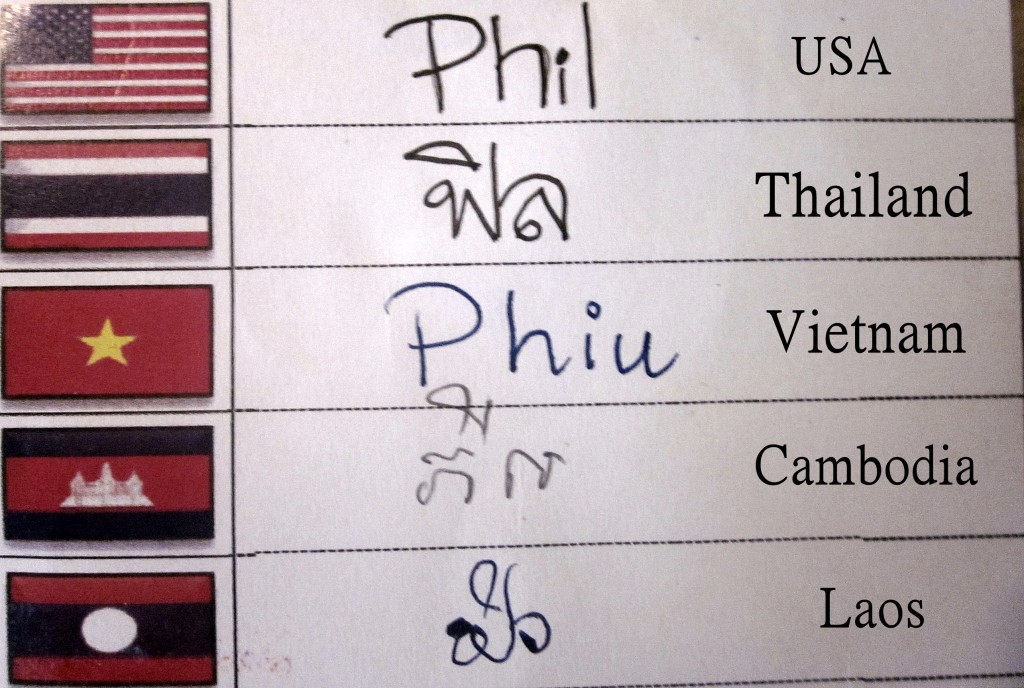 Phil USA
ฟิล Thailand
Phiu Vietnam
Cambodia
Laos